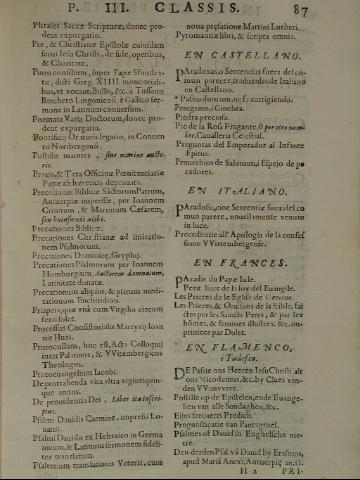 P. III. CLASSIS. 87
Phrases Sacræ Scripturæ, donec pro-
deat expurgatio.
Piæ, & Christianæ Epistolæ cuiusdam
serui Iesu Christi, de fide, operibus,
& Charitate.
Pium consilium, super Papæ Sfondra-
tæ, dicti Greg. XIIII. monitoriali-
bus, vt vocant, Bullis, &c. à Tussano
Bercheto Lingonensi, è Gallico ser-
mone in Latinum conuersum.
Poemata Varia Doctorum, donec pro-
deat expurgatio.
Pontificij Oratoris legatio, in Conuen
tu Noribergensi.
Postillæ maiores, sine nomine aucto-
ris.
Praxis, & Taxa Officinæ Pœnitentiariæ
Papæ ab hæreticis deprauata.
Precationes Biblicæ Sāctorum Patrum,
Antuerpiæ impressæ, per Ioannem
Crinitum, & Martinum Cæsarem,
seu huiusmodi alibi.
Precationes Biblicæ.
Precationes Christianæ ad imitatio-
nem Psalmorum.
Precationes Dominicæ, Gryphij.
Precationes Psalmorum per Ioannem
Homburgium, auctorem damnatum,
Latinitate donatæ.
Precationum aliquot, & piarum medi-
tationum Enchiridion.
Priapeia, quæ vnà cum Virgilio circum
ferri solet.
Processus Consistorialis Martyrij Ioan
nis Huss.
Protocollum, hoc est, Acta Colloquij
inter Palatinos, & VVitembergicos
Theologos.
Protoeuangelium Iacobi.
De protrahenda vita vltra vigintiquin-
que annos.
De prouidentia Dei, Liber ita inscri-
ptus.
Psalmi Dauidis Carmine, impressi Lo-
uanij.
Psalmi Dauidis ex Hebraico in Germa
nicum, & Latinum sermonem fideli-
ter translati.
Psalterium translationis Veteris, cum
noua præfatione Martini Lutheri.
Pyromantiæ libri, & scripta omnia.
EN CASTELLANO.
Paradoxas, o Sentencias fuera del co-
mun parecer, traduzidas de Italiano
en Castellano.
Pasino duorum, no se corrigiendo.
Peregrino, y Gineura.
Piedra preciosa.
Pie de la Rosa Fragante, o por otro nom-
bre, Caualleria Celestial.
Preguntas del Emperador al Infante
Epitus.
Prouerbios de Salomon, y Espejo de pe
cadores.
EN ITALIANO.
Paradossi, cioe Sentētiæ fuori del co
mun parere, nouellamente venuto
in luce.
Precedentie all' Apologia de la confes
sione VVittembergense.
EN FRANCES.
Paradis du Pape Iule.
Petit liure de la loy del Euangile.
Les Prieres de le Eglise de Geneue.
Les Prieres, & Oraisons de la Bible, fai
ctes per les Saincts Peres, & par les
hōmes, & femmes illustres, &c. im-
primées par Dolet.
EN FLAMENCO,
i Tudesco.
De Passie ons Heeren Iesu Christi als
ons Nicodemus, &c. by Claes vin-
den VVouvvere.
Postille op de Epistelen, ende Euange-
lien van alle Sondaghen, &c.
Epijns frenzen Predig.
Prognosticatie van Pantagruel.
Psalmes of Dauid in Enghelsche me-
tre.
Den derden Psal. vā Dauid by Erasmus,
apud Mariā Anexi, Antuerpiæ an. 51.
H 2 PRI-